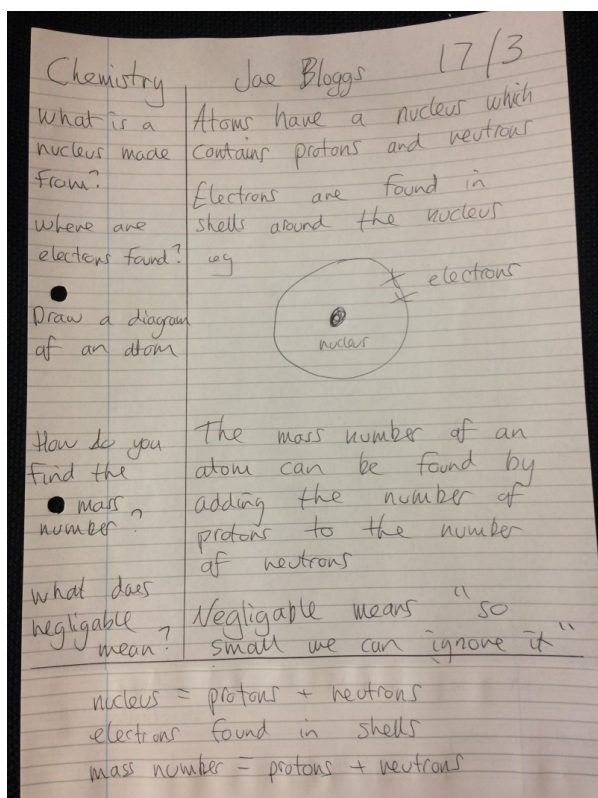 Chemistry
Joe Bloggs
17/3
What is a
nucleus made
from?
Where are
electrons found?
Draw a diagram
of an atom
How do you
find the
mass
number?
What does
negligable
mean?
Atoms have a nucleus which
contains protons and neutrons
Electrons are found in
shells around the nucleus
eg
electrons
nucleus
The mass number of an
atom can be found by
adding the number of
protons to the number
of neutrons
Negligable means "so
small we can ignore it"
nucleus = protons + neutrons
electrons found in shells
mass number = protons + neutrons